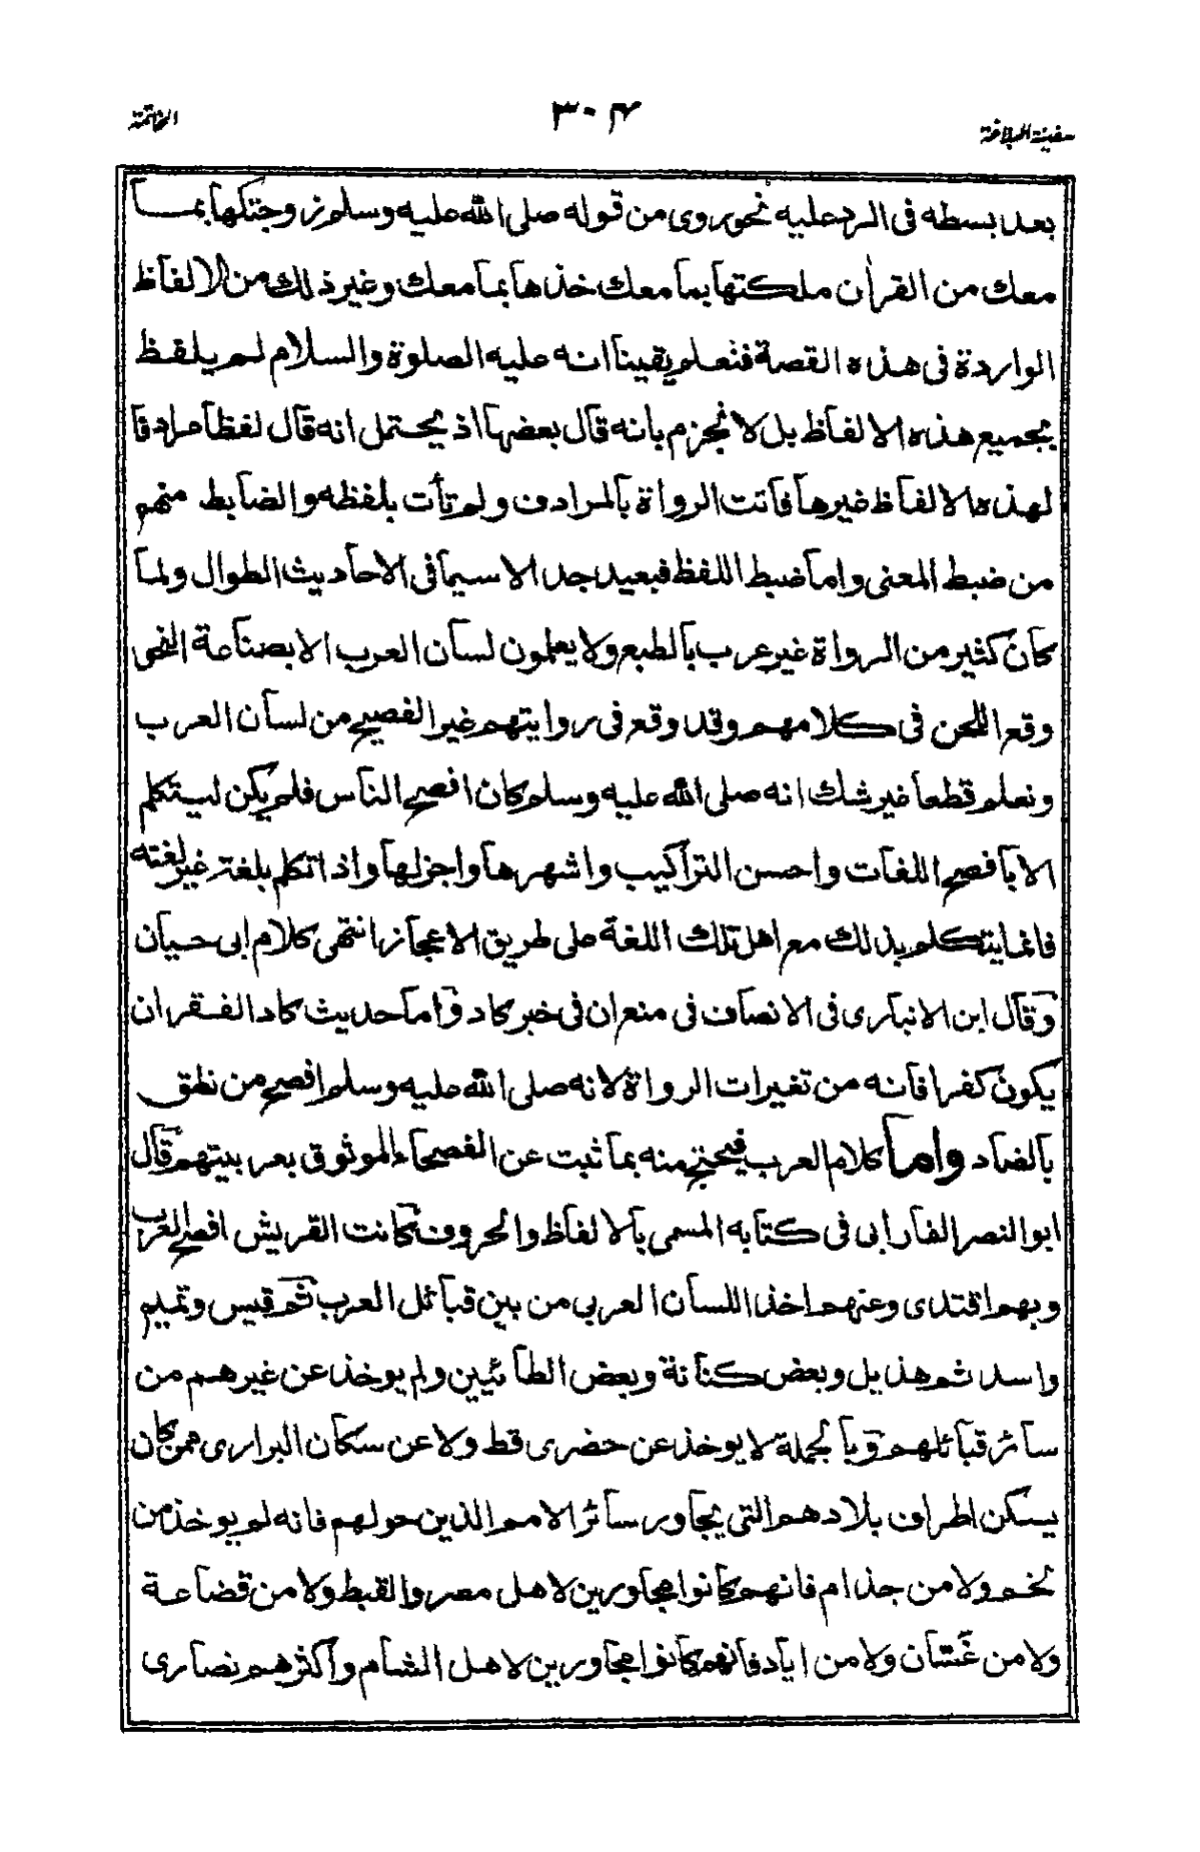 سفينة البلاغة
٣٠٤
الخاتمة
بعد بسطه فى الرد عليه نحو روى من قوله صلى الله عليه وسلم زوجتكها بما
معك من القرأن ملكتها بما معك خذها بما معك وغير ذلك من الالفاظ
الواردة فى هذه القصة فنعلم يقينا انه عليه الصلوة والسلام لم يلفظ
بجميع هذه الالفاظ بل لا نجزم بانه قال بعضها اذ يحتمل انه قال لفظا مرادفا
لهذه الالفاظ غيرها فاتت الرواة بالمرادف ولم تأت بلفظه والضابط منهم
من ضبط المعنى واما ضبط اللفظ فبعيد جدا لا سيما فى الاحاديث الطوال ولما
كان كثير من الرواة غير عرب بالطبع ولا يعلمون لسان العرب الا بصناعة النحو
وقع اللحن فى كلامهم وقد وقع فى روايتهم غير الفصيح من لسان العرب
ونعلم قطعا غير شك انه صلى الله عليه وسلم كان افصح الناس فلم يكن ليتكلم
الا بافصح اللغات واحسن التراكيب واشهرها واجزلها واذا تكلم بلغة غير لغته
فانما يتكلم بذلك مع اهل تلك اللغة على طريق الاعجاز انتهى كلام ابى حيان
وقال ابن الانبارى فى الانصاف فى منع ان فى خبر كاد واما حديث كاد الفقر ان
يكون كفرا فانه من تغيرات الرواة لانه صلى الله عليه وسلم افصح من نطق
بالضاد واما كلام العرب فيحتج منه بما ثبت عن الفصحاء الموثوق بعربيتهم قال
ابو النصر الفارابى فى كتابه المسمى بالالفاظ والحروف كانت القريش افصح العرب
وبهم اقتدى وعنهم اخذ اللسان العربى من بين قبائل العرب ثم قيس وتميم
واسد ثم هذيل وبعض كنانة وبعض الطائيين ولم يوخذ عن غيرهم من
سائر قبائلهم وبالجملة لا يوخذ عن حضرى قط ولا عن سكان البرارى ممن كان
يسكن اطراف بلادهم التى يجاور سائر الامم الذين حولهم فانه لم يوخذ من
لخم ولا من جذام فانهم كانوا مجاورين لاهل مصر والقبط ولا من قضاعة
ولا من غسان ولا من اياد فانهم كانوا مجاورين لاهل الشام واكثرهم نصارى